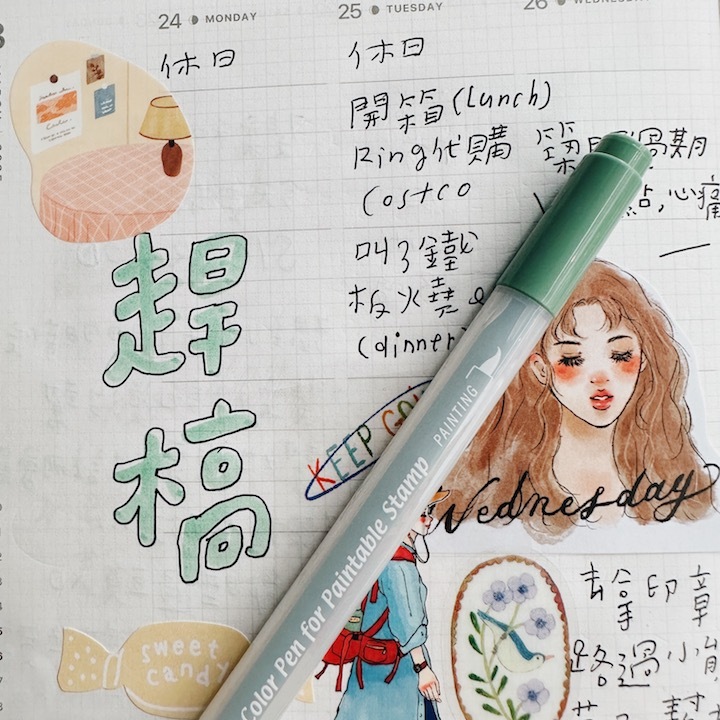 24 MONDAY
休日
趕
稿
sweet
candy
25 TUESDAY
休日
開箱(Lunch)
Ring代購
Costco
叫了鐵
板火燒
(dinner
KEEP GO
26
期
心痛
Wednesday
去拿印章
路過小
PAINTING
Color Pen for Paintable Stamp